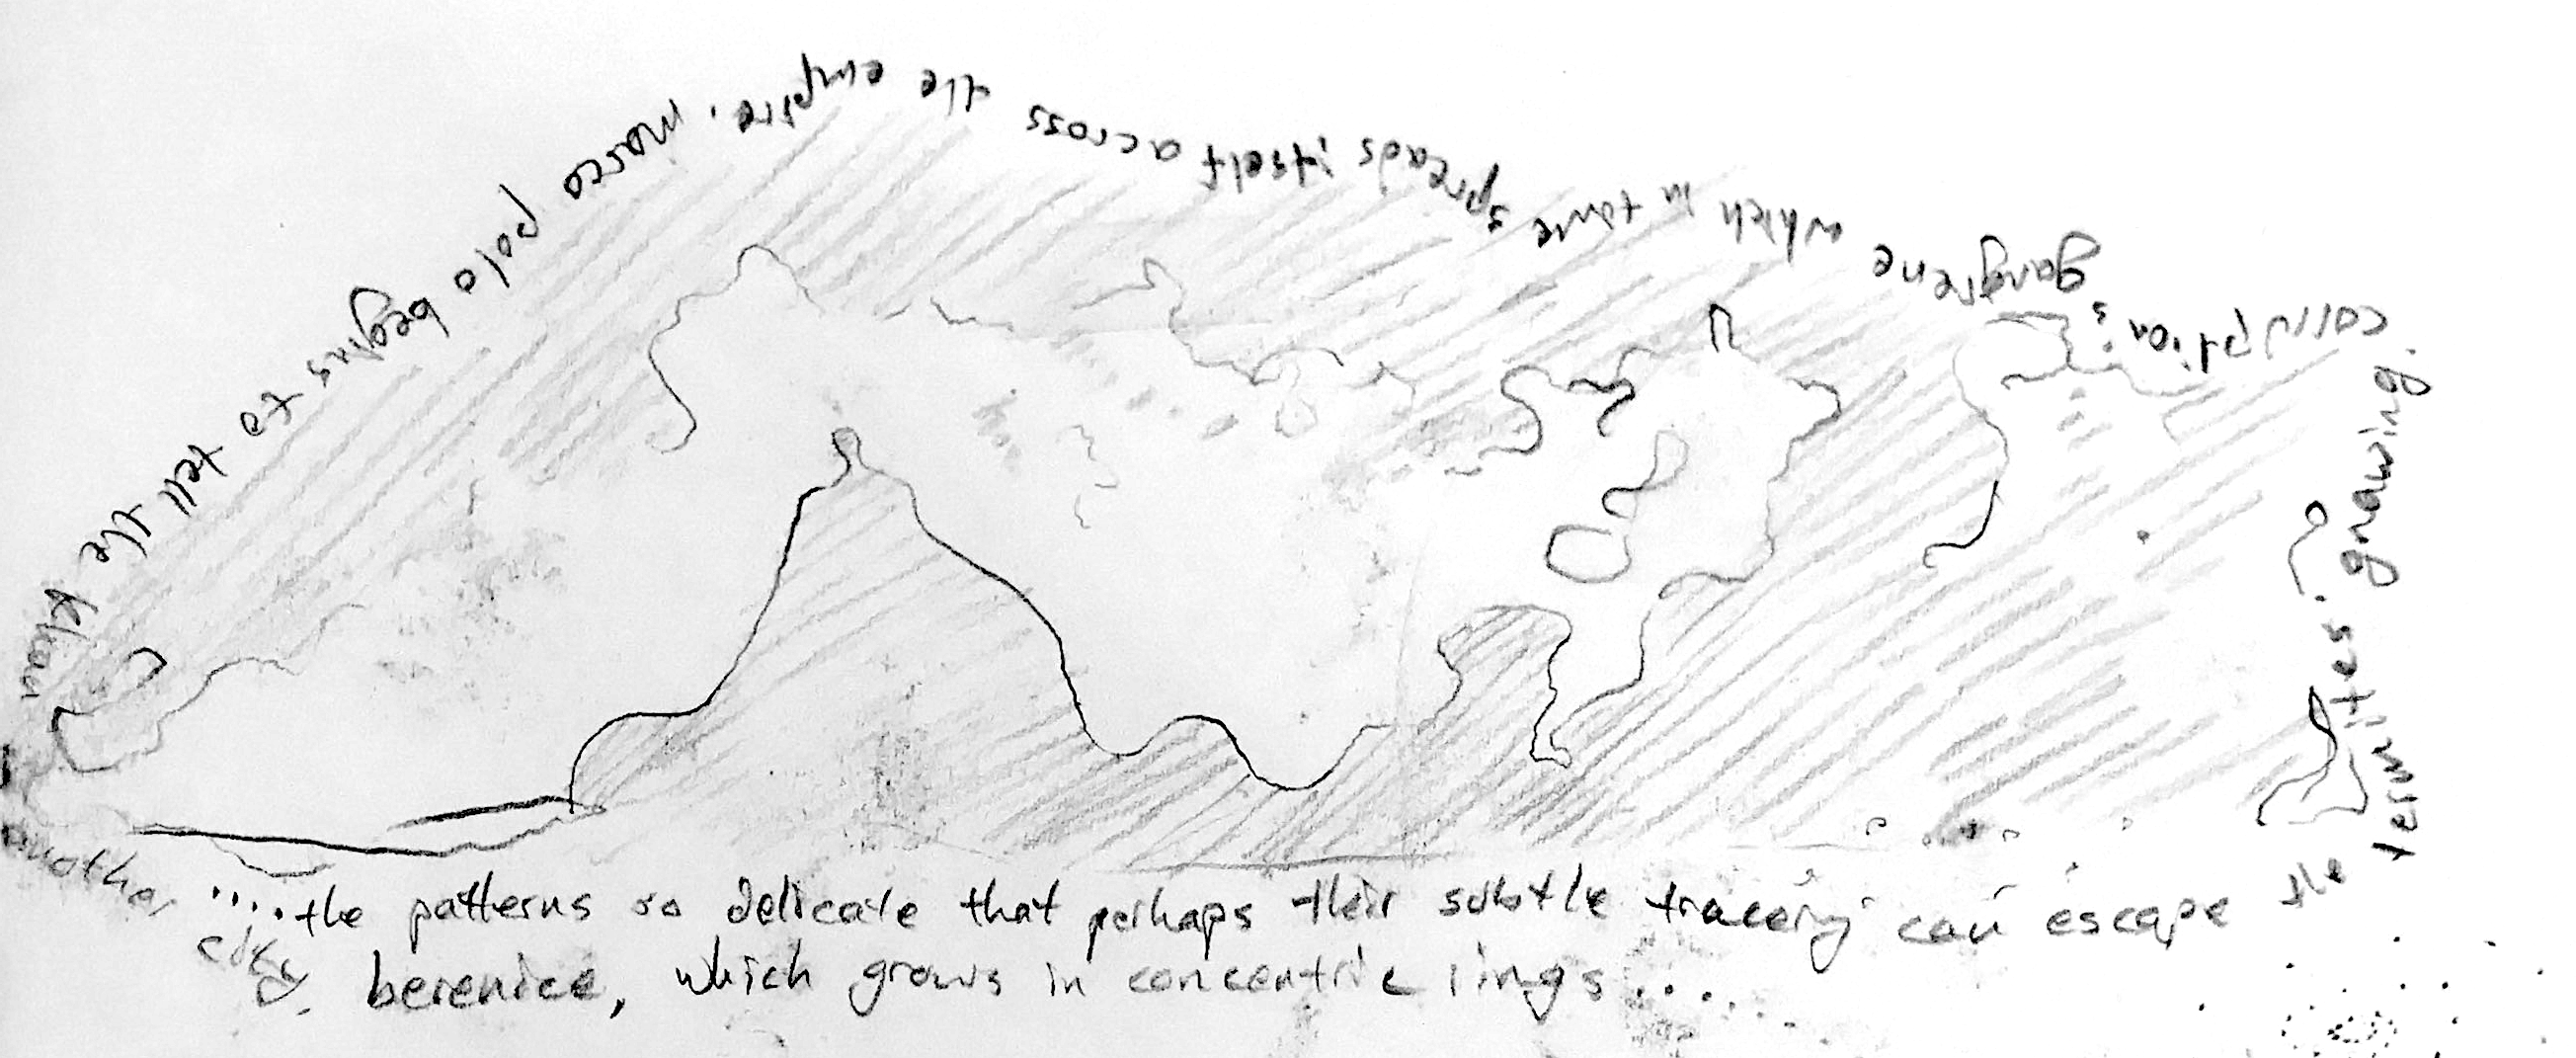 ....the patterns so delicate that perhaps their subtle tracery can escape the
termites' gnawing.
corruption's gangrene which in time spreads itself across the empire, marco polo begins to tell the khan
another city, berenice, which grows in concentric rings....